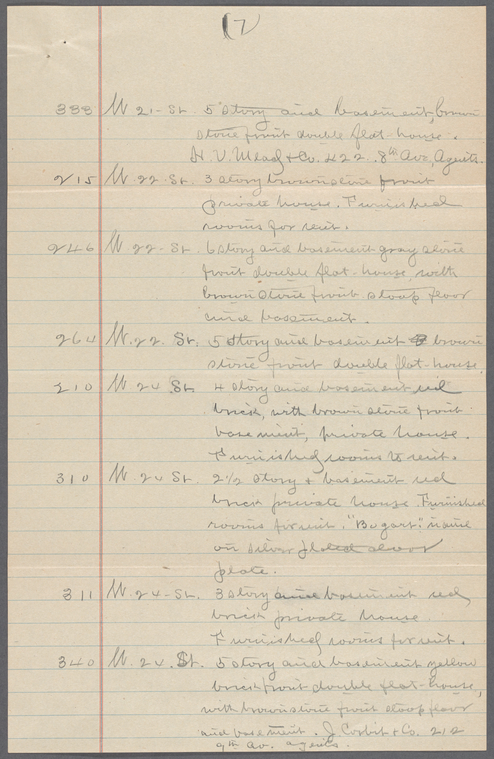 (7
333 W 21-St. 5 story and basement, brown
stone front double flat-house.
H. V. Mead & Co. 422. 8th Ave. Agents.
215 W. 22-St. 3 story brownstone front
private house. Furnished
rooms for rent.
246 W. 22-St. 6 story and basement gray stone
front double flat-house, with
brown stone front stoop floor
and basement.
264 W. 22. St. 5 story and basement brown
stone front double flat-house.
210 W 24 St. 4 story and basement red
brick, with brown stone front
basement, private house.
Furnished rooms to rent.
310 W. 24 St. 2 1/2 story & basement red
brick private house. Furnished
rooms for rent. "Bogart." name
on silver plated door
plate.
311 W. 24-St. 3 story and basement red
brick private house.
Furnished rooms for rent.
340 W. 24. St. 5 story and basement yellow
brick front double flat-house,
with brownstone front stoop floor
and basement. J. Corbit & Co. 212
9th Av. agents.